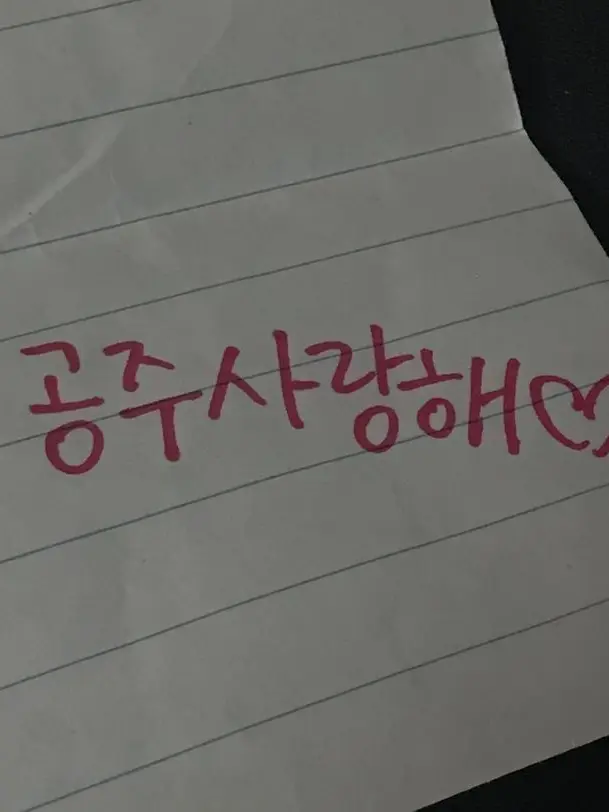 공주사랑해♡